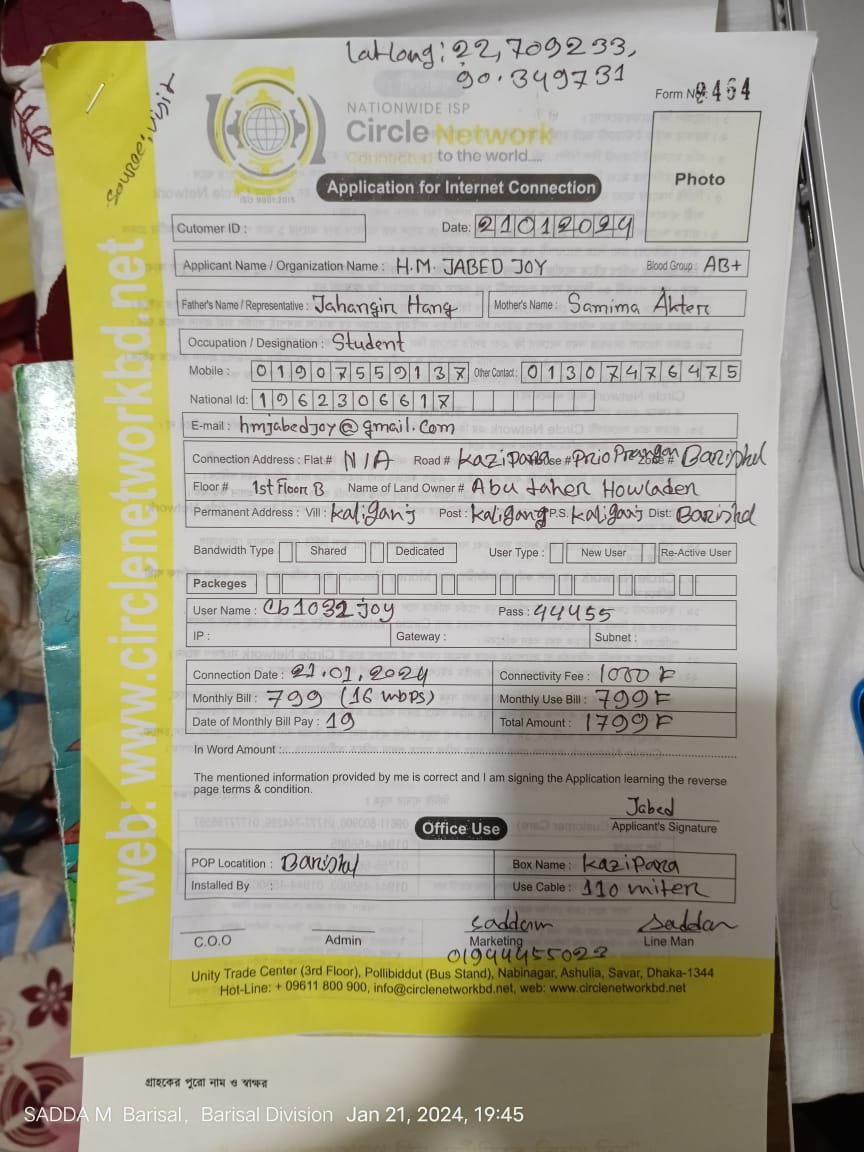 Lat Long: 22,709233,
90.349731
Source: visit
NATIONWIDE ISP
Circle Network
Connected to the world....
ISO 9001:2015
Form No: 9464
Photo
Application for Internet Connection
Cutomer ID :
Date: 21012024
Applicant Name / Organization Name : H.M. JABED JOY
Blood Group : AB+
Father's Name / Representative : Jahangir Hang
Mother's Name : Samima Akter
Occupation / Designation : Student
Mobile : 01907559137 Other Contact : 01307476475
National Id: 1962306617
E-mail : hmjabedjoy@gmail.com
Connection Address : Flat # N/A Road # Kazi Para House # Prio Prangon Zone # Barishal
Floor # 1st Floor B Name of Land Owner # Abu taher Howlader
Permanent Address : Vill : Kaliganj Post : Kaliganj P.S. Kaliganj Dist: Barishal
Bandwidth Type Shared Dedicated User Type : New User Re-Active User
Packeges
User Name : Cb1032joy Pass : 44455
IP : Gateway : Subnet :
Connection Date : 21.01.2024 Connectivity Fee : 1000 F
Monthly Bill : 799 (16 mbps) Monthly Use Bill : 799 F
Date of Monthly Bill Pay : 19 Total Amount : 1799 F
In Word Amount :
The mentioned information provided by me is correct and I am signing the Application learning the reverse
page terms & condition.
Jabed
Applicant's Signature
Office Use
POP Locatition : Barishal Box Name : Kazi Para
Installed By : Use Cable : 110 miter
Saddam Saddam
C.O.O Admin Marketing Line Man
01944455023
Unity Trade Center (3rd Floor), Pollibiddut (Bus Stand), Nabinagar, Ashulia, Savar, Dhaka-1344
Hot-Line: + 09611 800 900, info@circlenetworkbd.net, web: www.circlenetworkbd.net
web: www.circlenetworkbd.net
গ্রাহকের পুরো নাম ও স্বাক্ষর
SADDA M Barisal, Barisal Division Jan 21, 2024, 19:45